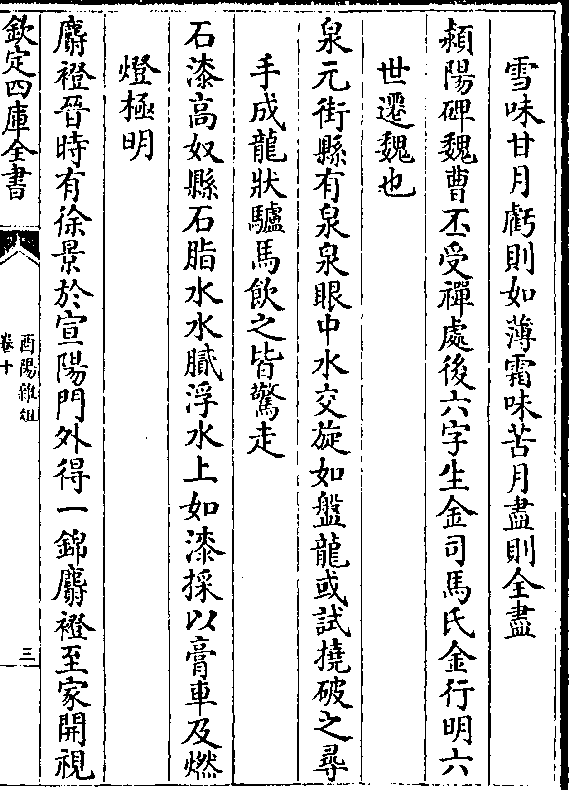 雪味甘月虧則如薄霜味苦月盡則全盡
頴陽碑魏曹丕受禪處後六字生金司馬氏金行明六
世遷魏也
泉元街縣有泉泉眼中水交旋如盤龍或試撓破之尋
手成龍狀驢馬飲之皆驚走
石漆高奴縣石脂水水膩浮水上如漆採以膏車及燃
燈極明
麝橙晉時有徐景於宣陽門外得一錦麝橙至家開視
欽定四庫全書
酉陽雜俎
卷十
三